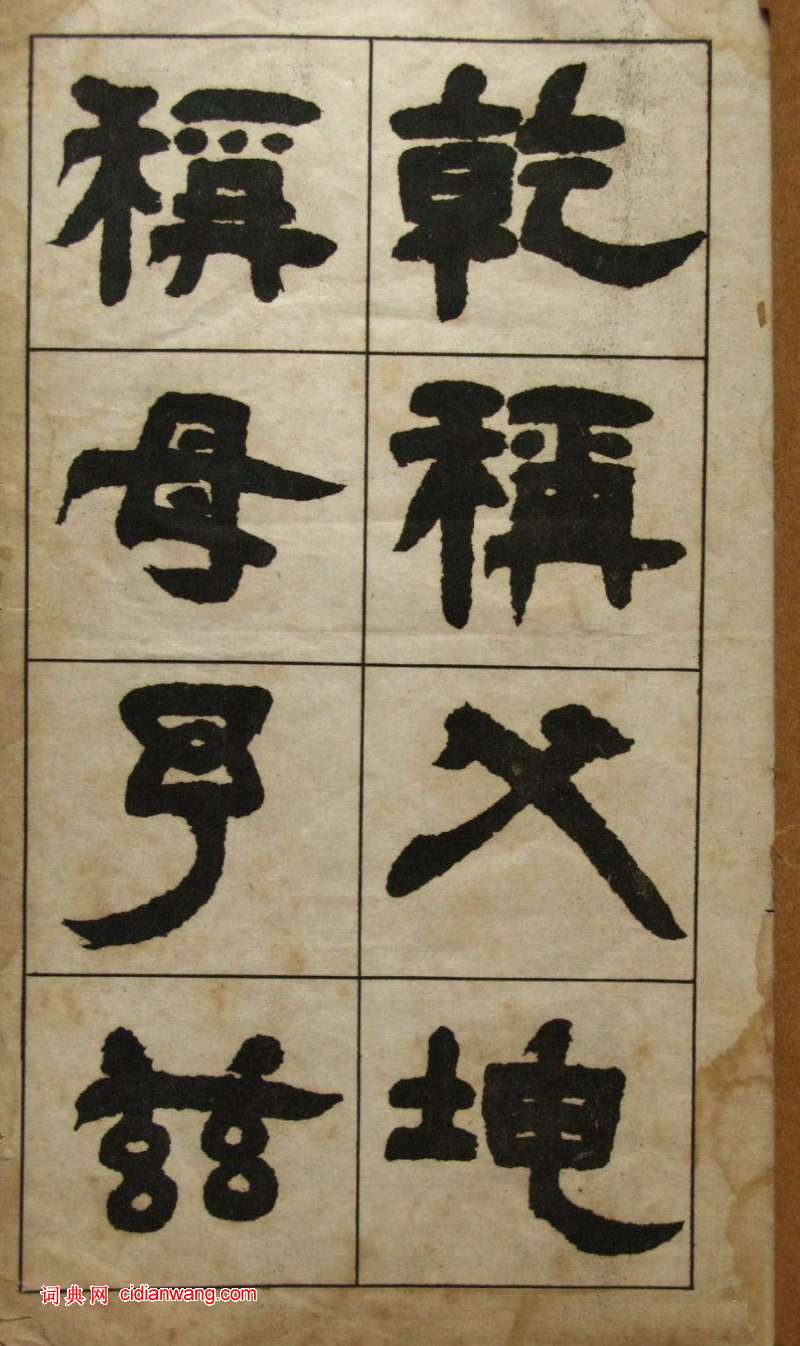 乾稱父坤
稱母予茲
词典网 cidianwang.com